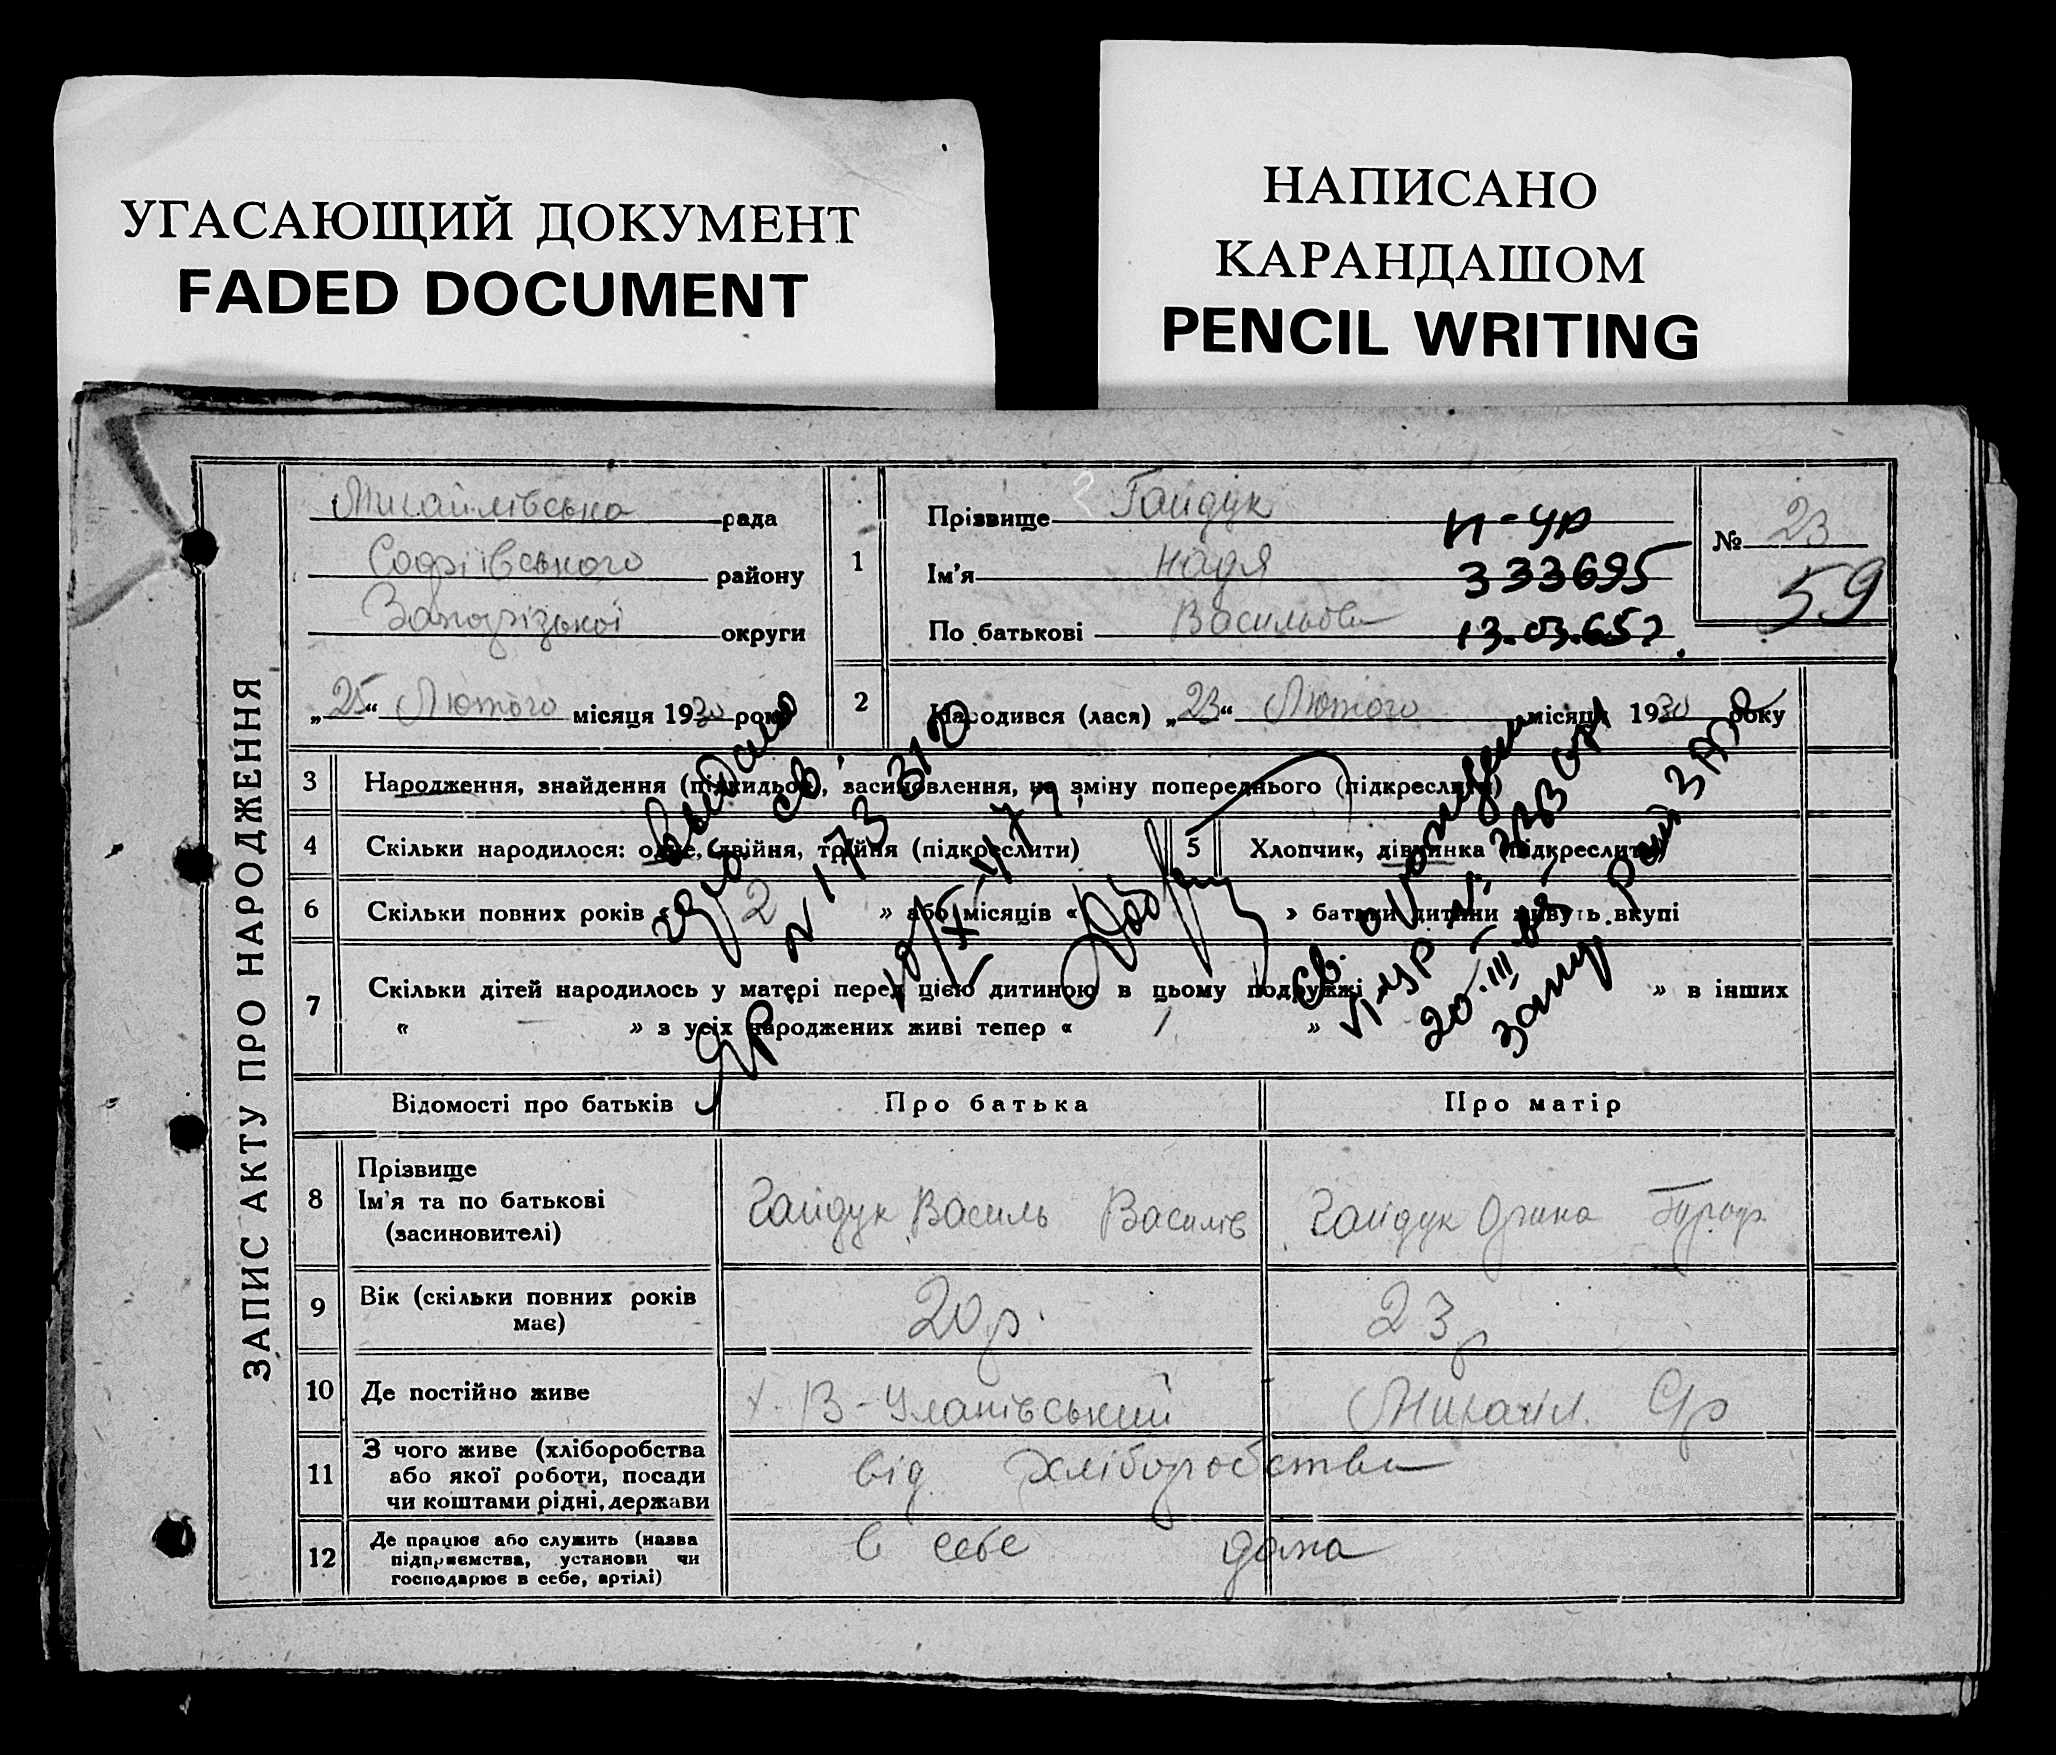 УГАСАЮЩИЙ ДОКУМЕНТ
FADED DOCUMENT
НАПИСАНО
КАРАНДАШОМ
PENCIL WRITING
ЗАПИС АКТУ ПРО НАРОДЖЕННЯ
Михайлівська рада
Софіївського району
Запорізької округи
„25“ Лютого місяця 1930 року
1
Прізвище Гайдук
Ім'я Надя
По батькові Васильовн
II-УР
333695
13.03.65
№ 23
59
2 Народився (лася) „23“ Лютого місяця 1930 року
3 Народження, знайдення (підкидьок), засиновлення, на зміну попереднього (підкреслити)
4 Скільки народилося: одне, двійня, трійня (підкреслити)
5 Хлопчик, дівчинка (підкреслити)
6 Скільки повних років « 2 » або місяців « » батьки дитини живуть вкупі
7 Скільки дітей народилось у матері перед цією дитиною в цьому подружжі » в інших
« — » з усіх народжених живі тепер « 1 »
Выдано
св
N 173
Св. о
20.III.65
Відомості про батьків
Про батька
Про матір
8 Прізвище
Ім'я та по батькові
(засиновителі)
Гайдук Василь Василів
Гайдук Орина
9 Вік (скільки повних років
має)
20 р.
23 р
10 Де постійно живе
х. В-Уланівський
Михайл. С/р
11 З чого живе (хліборобства
або якої роботи, посади
чи коштами рідні, держави
від хліборобства
12 Де працює або служить (назва
підприємства, установи чи
господарює в себе, артілі)
в себе дома